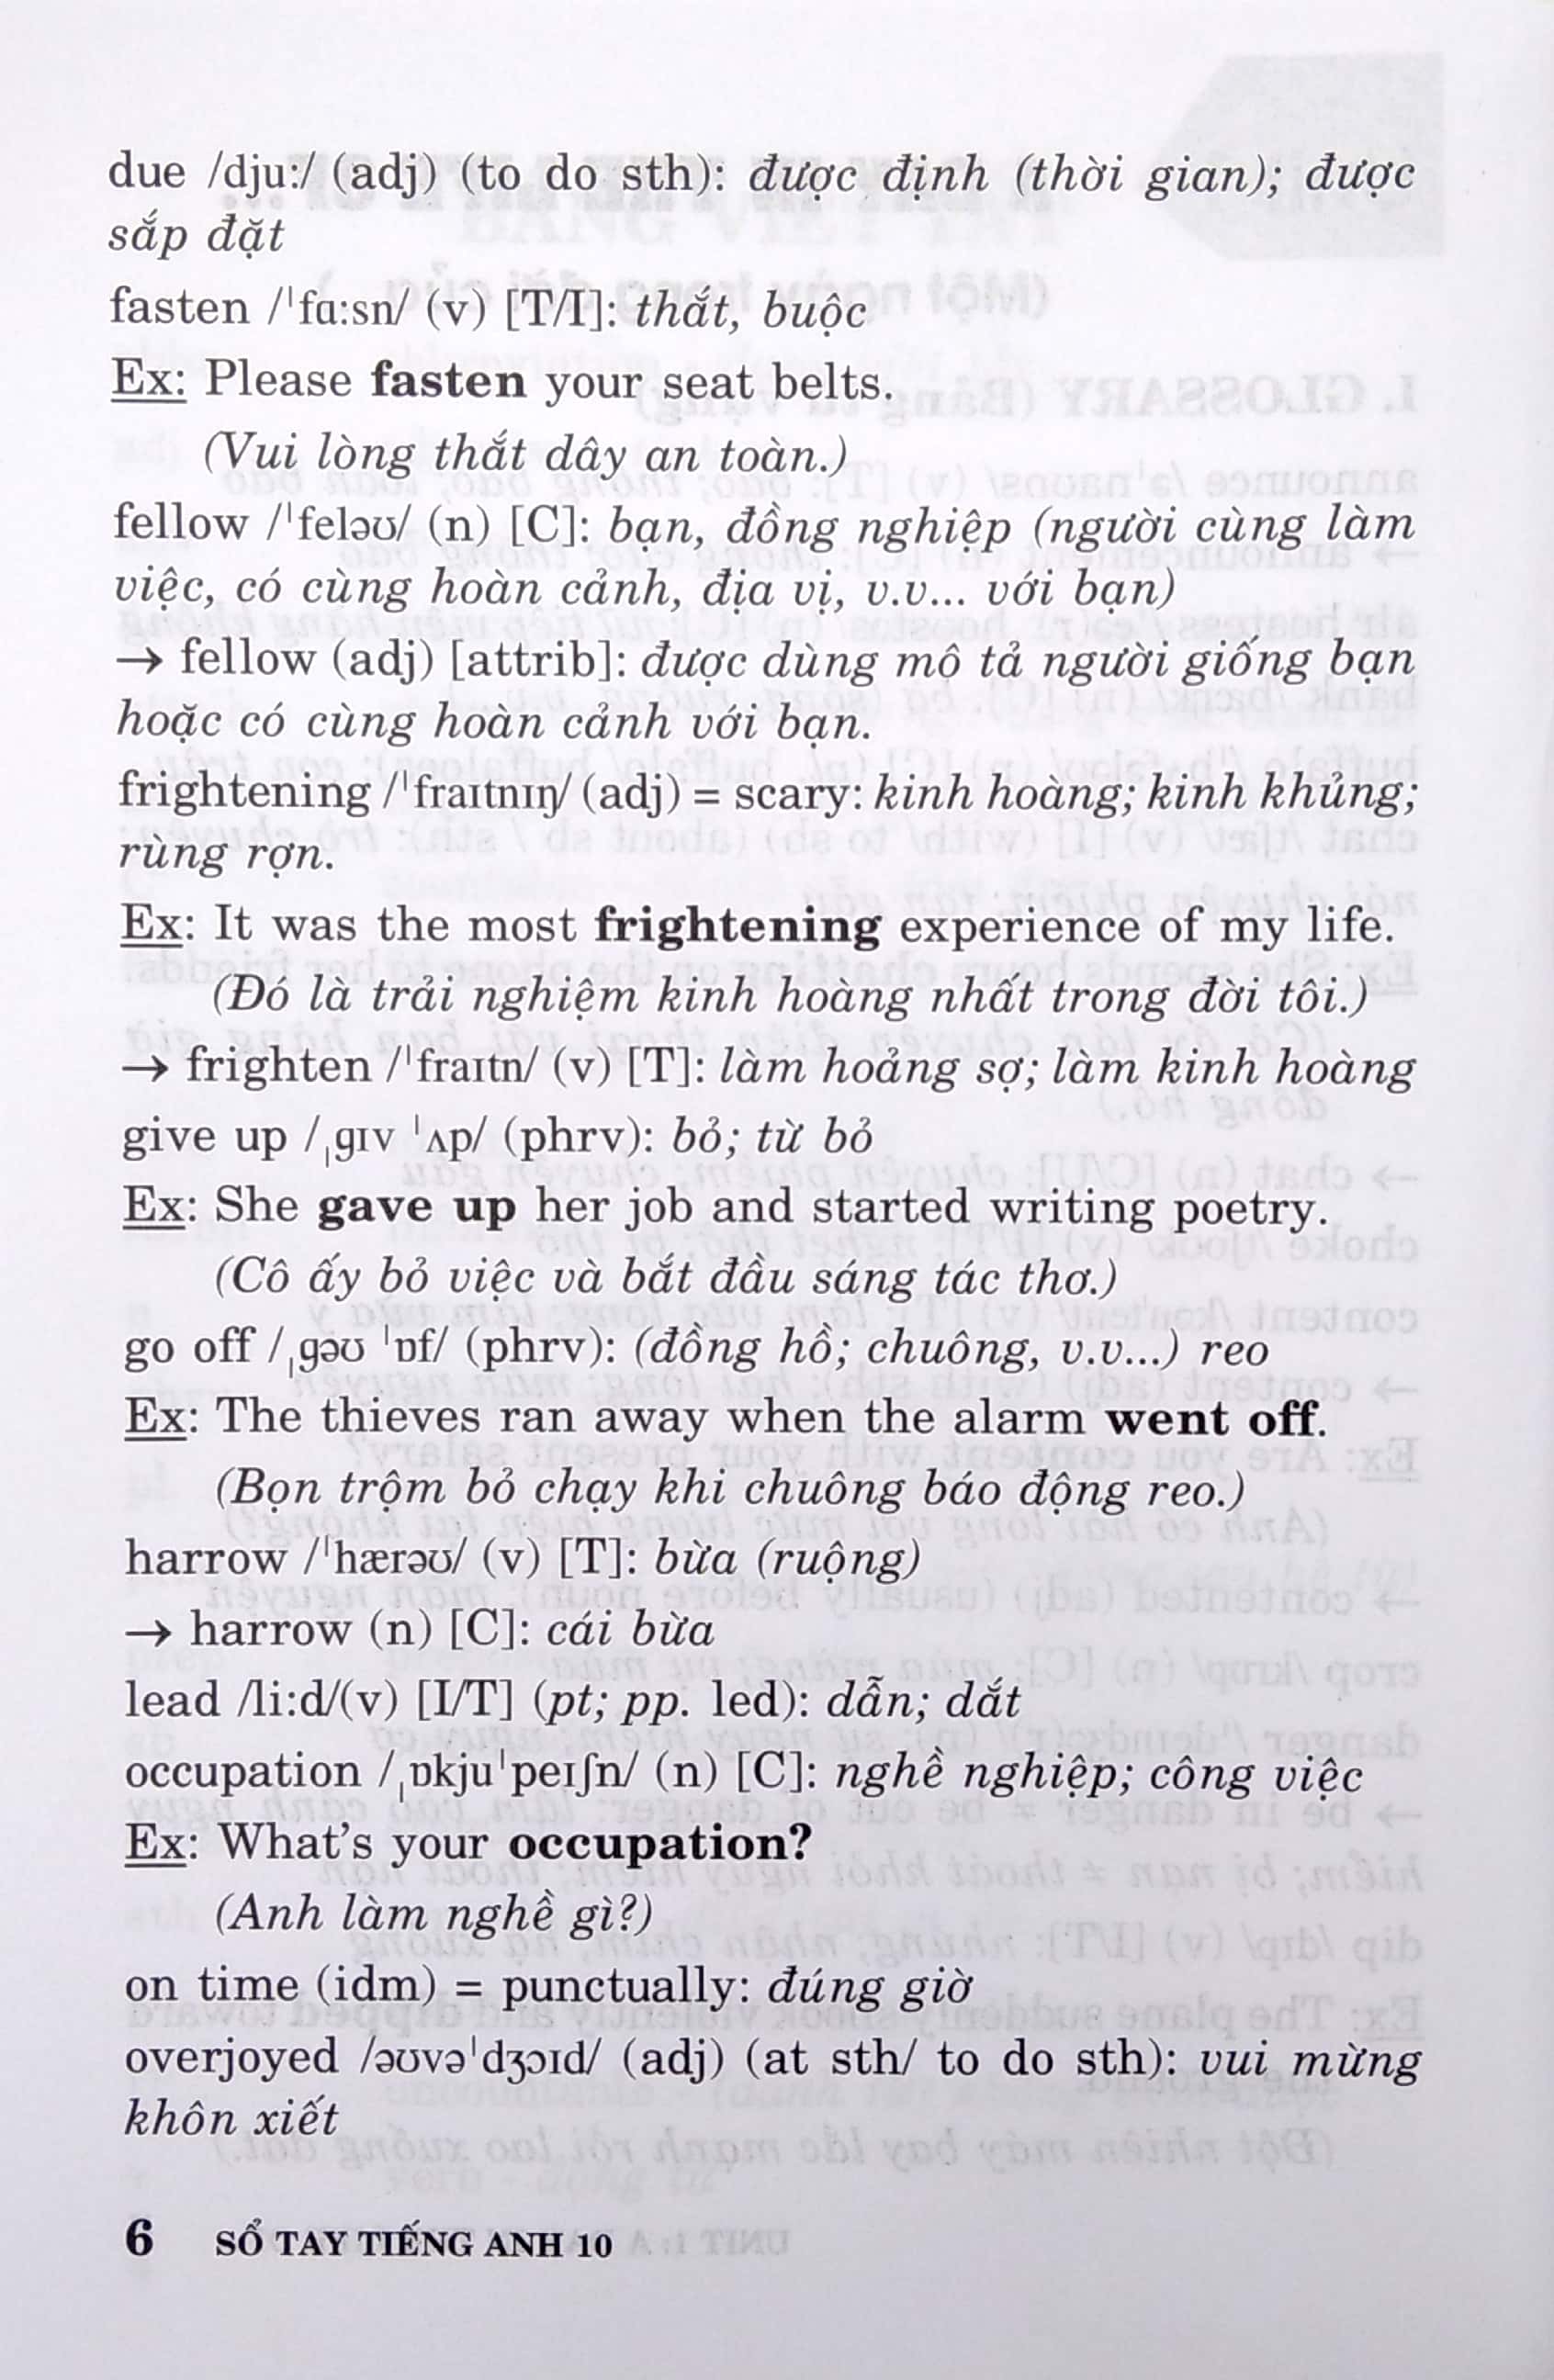 due /dju:/ (adj) (to do sth): được định (thời gian); được
sắp đặt
fasten /ˈfɑ:sn/ (v) [T/I]: thắt, buộc
Ex: Please fasten your seat belts.
(Vui lòng thắt dây an toàn.)
fellow /ˈfeləʊ/ (n) [C]: bạn, đồng nghiệp (người cùng làm
việc, có cùng hoàn cảnh, địa vị, v.v... với bạn)
→ fellow (adj) [attrib]: được dùng mô tả người giống bạn
hoặc có cùng hoàn cảnh với bạn.
frightening /ˈfraɪtnɪŋ/ (adj) = scary: kinh hoàng; kinh khủng;
rùng rợn.
Ex: It was the most frightening experience of my life.
(Đó là trải nghiệm kinh hoàng nhất trong đời tôi.)
→ frighten /ˈfraɪtn/ (v) [T]: làm hoảng sợ; làm kinh hoàng
give up /ˌgɪv ˈʌp/ (phrv): bỏ; từ bỏ
Ex: She gave up her job and started writing poetry.
(Cô ấy bỏ việc và bắt đầu sáng tác thơ.)
go off /ˌgəʊ ˈɒf/ (phrv): (đồng hồ; chuông, v.v...) reo
Ex: The thieves ran away when the alarm went off.
(Bọn trộm bỏ chạy khi chuông báo động reo.)
harrow /ˈhærəʊ/ (v) [T]: bừa (ruộng)
→ harrow (n) [C]: cái bừa
lead /li:d/(v) [I/T] (pt; pp. led): dẫn; dắt
occupation /ˌɒkjuˈpeɪʃn/ (n) [C]: nghề nghiệp; công việc
Ex: What's your occupation?
(Anh làm nghề gì?)
on time (idm) = punctually: đúng giờ
overjoyed /əʊvəˈdʒɔɪd/ (adj) (at sth/ to do sth): vui mừng
khôn xiết
6 SỔ TAY TIẾNG ANH 10